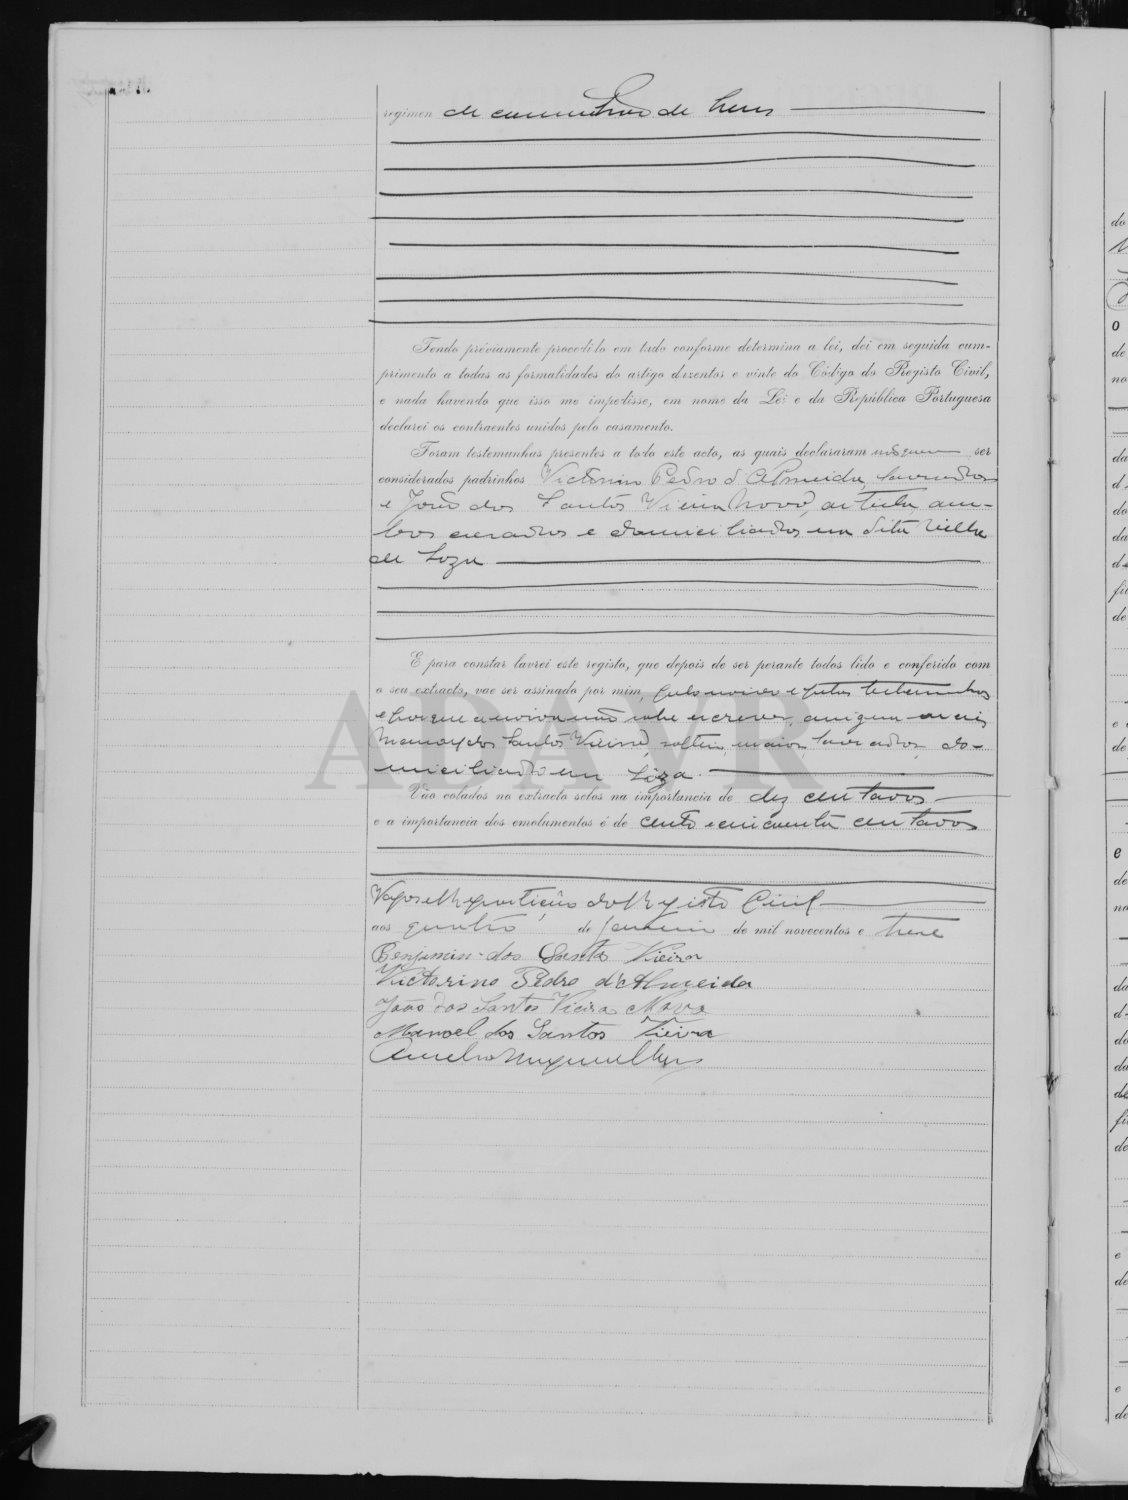 regimen de communhão de bens
Tendo préviamente procedido em tudo conforme determina a lei, dei em seguida cum-
primento a todas as formalidades do artigo duzentos e vinte do Código do Registo Civil,
e nada havendo que isso me impedisse, em nome da Lei e da República Portuguesa
declarei os contraentes unidos pelo casamento.
Foram testemunhas presentes a todo este acto, as quais declararam ser
considerados padrinhos Victorino Pedro d'Almeida, lavrador
e João dos Santos Vieira Novo, artista, am-
bos casados e domiciliados em dita villa
de Soza
E para constar lavrei este registo, que depois de ser perante todos lido e conferido com
o seu extracto, vae ser assinado por mim, pelo noivo e pelas testemunhas
e porque a noiva não sabe escrever, assigna
Manoel dos Santos Vieira, solteiro, maior, lavrador, do-
miciliado em Soza.
Vão colados no extracto selos na importancia de dez centavos
e a importancia dos emolumentos é de cento e cincoenta centavos
Vagos e Repartição do Registo Civil
aos quatro de Janeiro de mil novecentos e treze
Benjamin dos Santos Vieira
Victorino Pedro d'Almeida
João dos Santos Vieira Novo
Manoel dos Santos Vieira
ADAVR
do
o
de
no
da
do
da
de
de
e
de
e
de
no
da
do
da
de
de
e
de
e
de